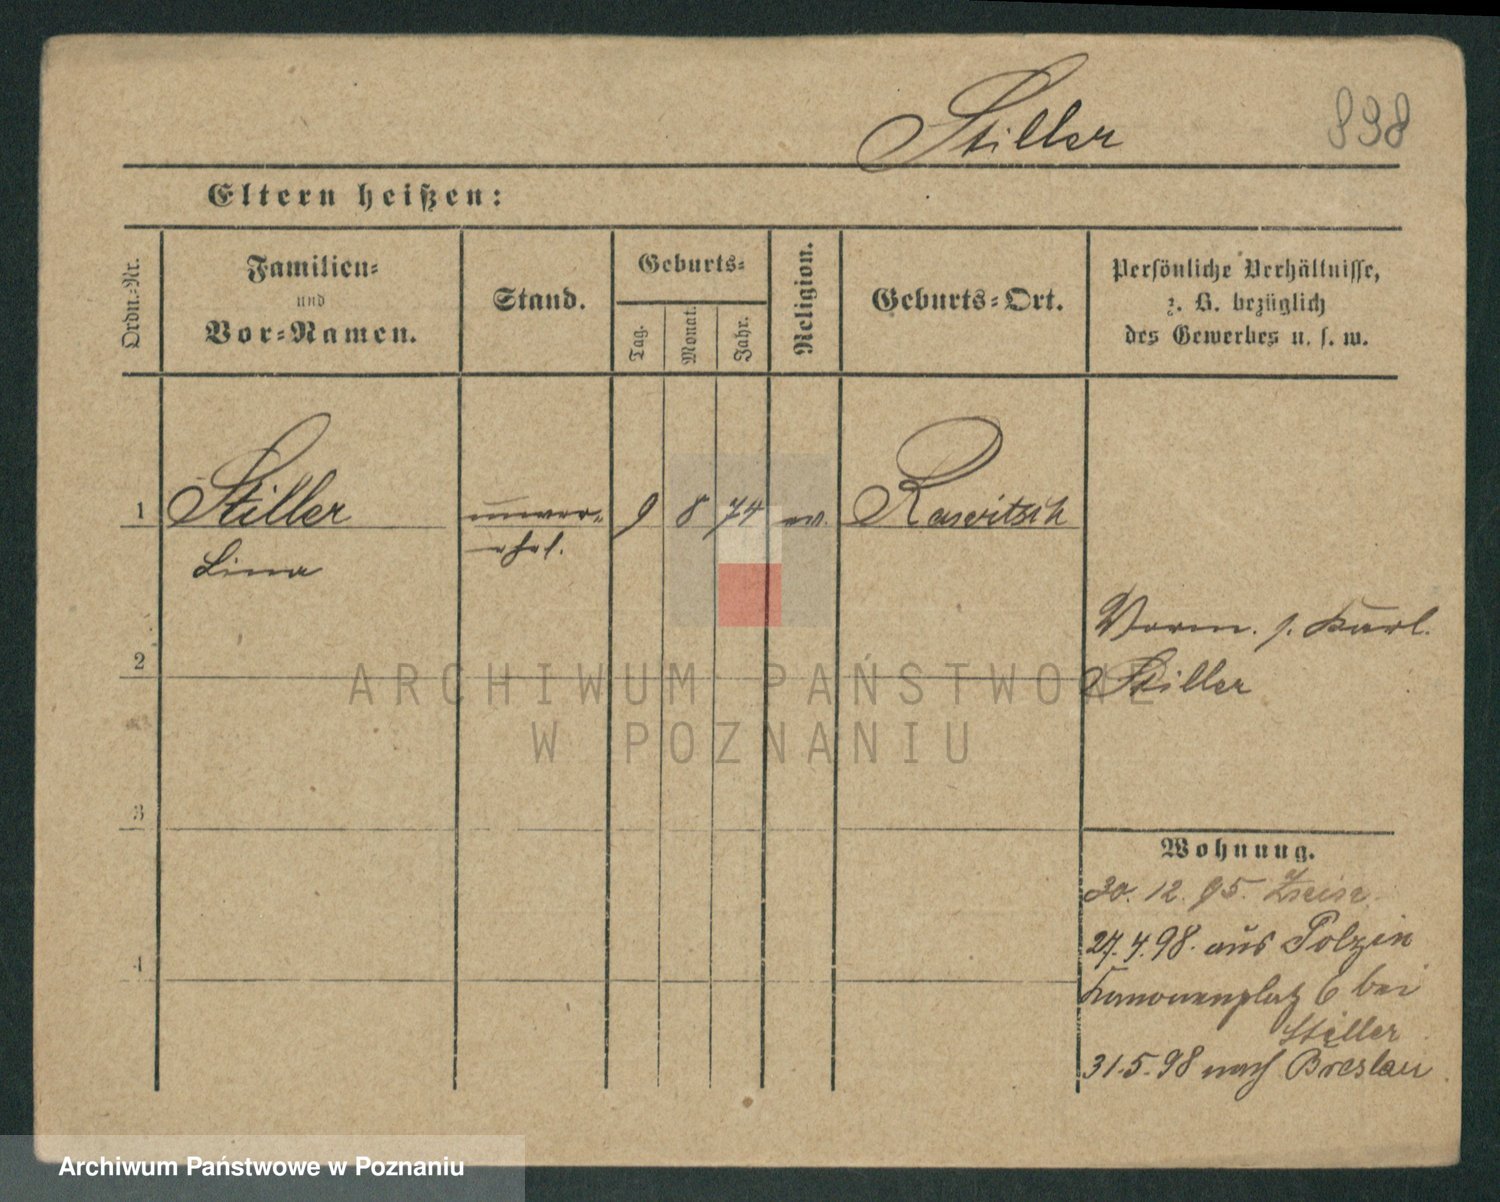 Stiller
838
Eltern heißen:
Ordn.-Nr.
Familien-
und
Vor-Namen.
Stand.
Geburts-
Tag.
Monat.
Jahr.
Religion.
Geburts-Ort.
Persönliche Verhältnisse,
z. B. bezüglich
des Gewerbes u. s. w.
1 Stiller unver- 9 8 74 ev. Rawitsch
Lina ehel.
Vorm. s. Karl
Stiller
2
3
4
Wohnung.
30. 12. 95.
27. 4. 98. aus Polzin
Kanonenplatz 6 bei
Stiller
31.5.98 nach Breslau
ARCHIWUM PAŃSTWOWE
W POZNANIU
Archiwum Państwowe w Poznaniu